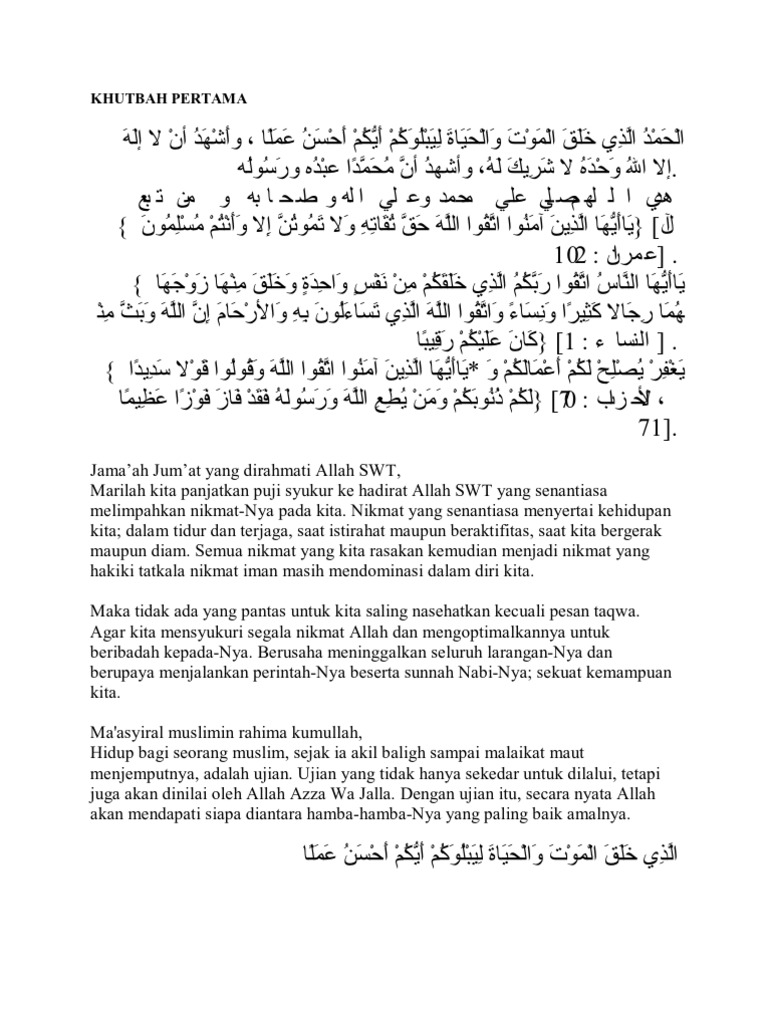 KHUTBAH PERTAMA
الْحَمْدُ الَّذِي خَلَقَ الْمَوْتَ وَالْحَيَاةَ لِيَبْلُوَكُمْ أَيُّكُمْ أَحْسَنُ عَمَلًا ، وأَشْهَدُ أَنْ لا إلَهَ
إلا اللهُ وَحْدَهُ لا شَرِيكَ لَهُ، وأشهدُ أنَّ مُحَمَّدًا عبْدُه ورَسُولُه.
صلي علي محمد وعلي اله و
{ يَاأَيُّهَا الَّذِينَ آمَنُوا اتَّقُوا اللَّهَ حَقَّ تُقَاتِهِ وَلا تَمُوتُنَّ إلا وَأَنْتُمْ مُسْلِمُونَ} [آل
عمران : 102] .
{ يَاأَيُّهَا النَّاسُ اتَّقُوا رَبَّكُمُ الَّذِي خَلَقَكُمْ مِنْ نَفْسٍ وَاحِدَةٍ وَخَلَقَ مِنْهَا زَوْجَهَا
وَبَثَّ مِنْهُمَا رِجَالا كَثِيرًا وَنِسَاءً وَاتَّقُوا اللَّهَ الَّذِي تَسَاءَلُونَ بِهِ وَالأَرْحَامَ إِنَّ اللَّهَ
كَانَ عَلَيْكُمْ رَقِيبًا} [النساء : 1] .
{ يَاأَيُّهَا الَّذِينَ آمَنُوا اتَّقُوا اللَّهَ وَقُولُوا قَوْلا سَدِيدًا* يُصْلِحْ لَكُمْ أَعْمَالَكُمْ وَيَغْفِرْ
لَكُمْ ذُنُوبَكُمْ وَمَنْ يُطِعِ اللَّهَ وَرَسُولَهُ فَقَدْ فَازَ فَوْزًا عَظِيمًا} [الأحزاب : 70 ،
71].
Jama’ah Jum’at yang dirahmati Allah SWT,
Marilah kita panjatkan puji syukur ke hadirat Allah SWT yang senantiasa
melimpahkan nikmat-Nya pada kita. Nikmat yang senantiasa menyertai kehidupan
kita; dalam tidur dan terjaga, saat istirahat maupun beraktifitas, saat kita bergerak
maupun diam. Semua nikmat yang kita rasakan kemudian menjadi nikmat yang
hakiki tatkala nikmat iman masih mendominasi dalam diri kita.
Maka tidak ada yang pantas untuk kita saling nasehatkan kecuali pesan taqwa.
Agar kita mensyukuri segala nikmat Allah dan mengoptimalkannya untuk
beribadah kepada-Nya. Berusaha meninggalkan seluruh larangan-Nya dan
berupaya menjalankan perintah-Nya beserta sunnah Nabi-Nya; sekuat kemampuan
kita.
Ma'asyiral muslimin rahima kumullah,
Hidup bagi seorang muslim, sejak ia akil baligh sampai malaikat maut
menjemputnya, adalah ujian. Ujian yang tidak hanya sekedar untuk dilalui, tetapi
juga akan dinilai oleh Allah Azza Wa Jalla. Dengan ujian itu, secara nyata Allah
akan mendapati siapa diantara hamba-hamba-Nya yang paling baik amalnya.
الَّذِي خَلَقَ الْمَوْتَ وَالْحَيَاةَ لِيَبْلُوَكُمْ أَيُّكُمْ أَحْسَنُ عَمَلًا